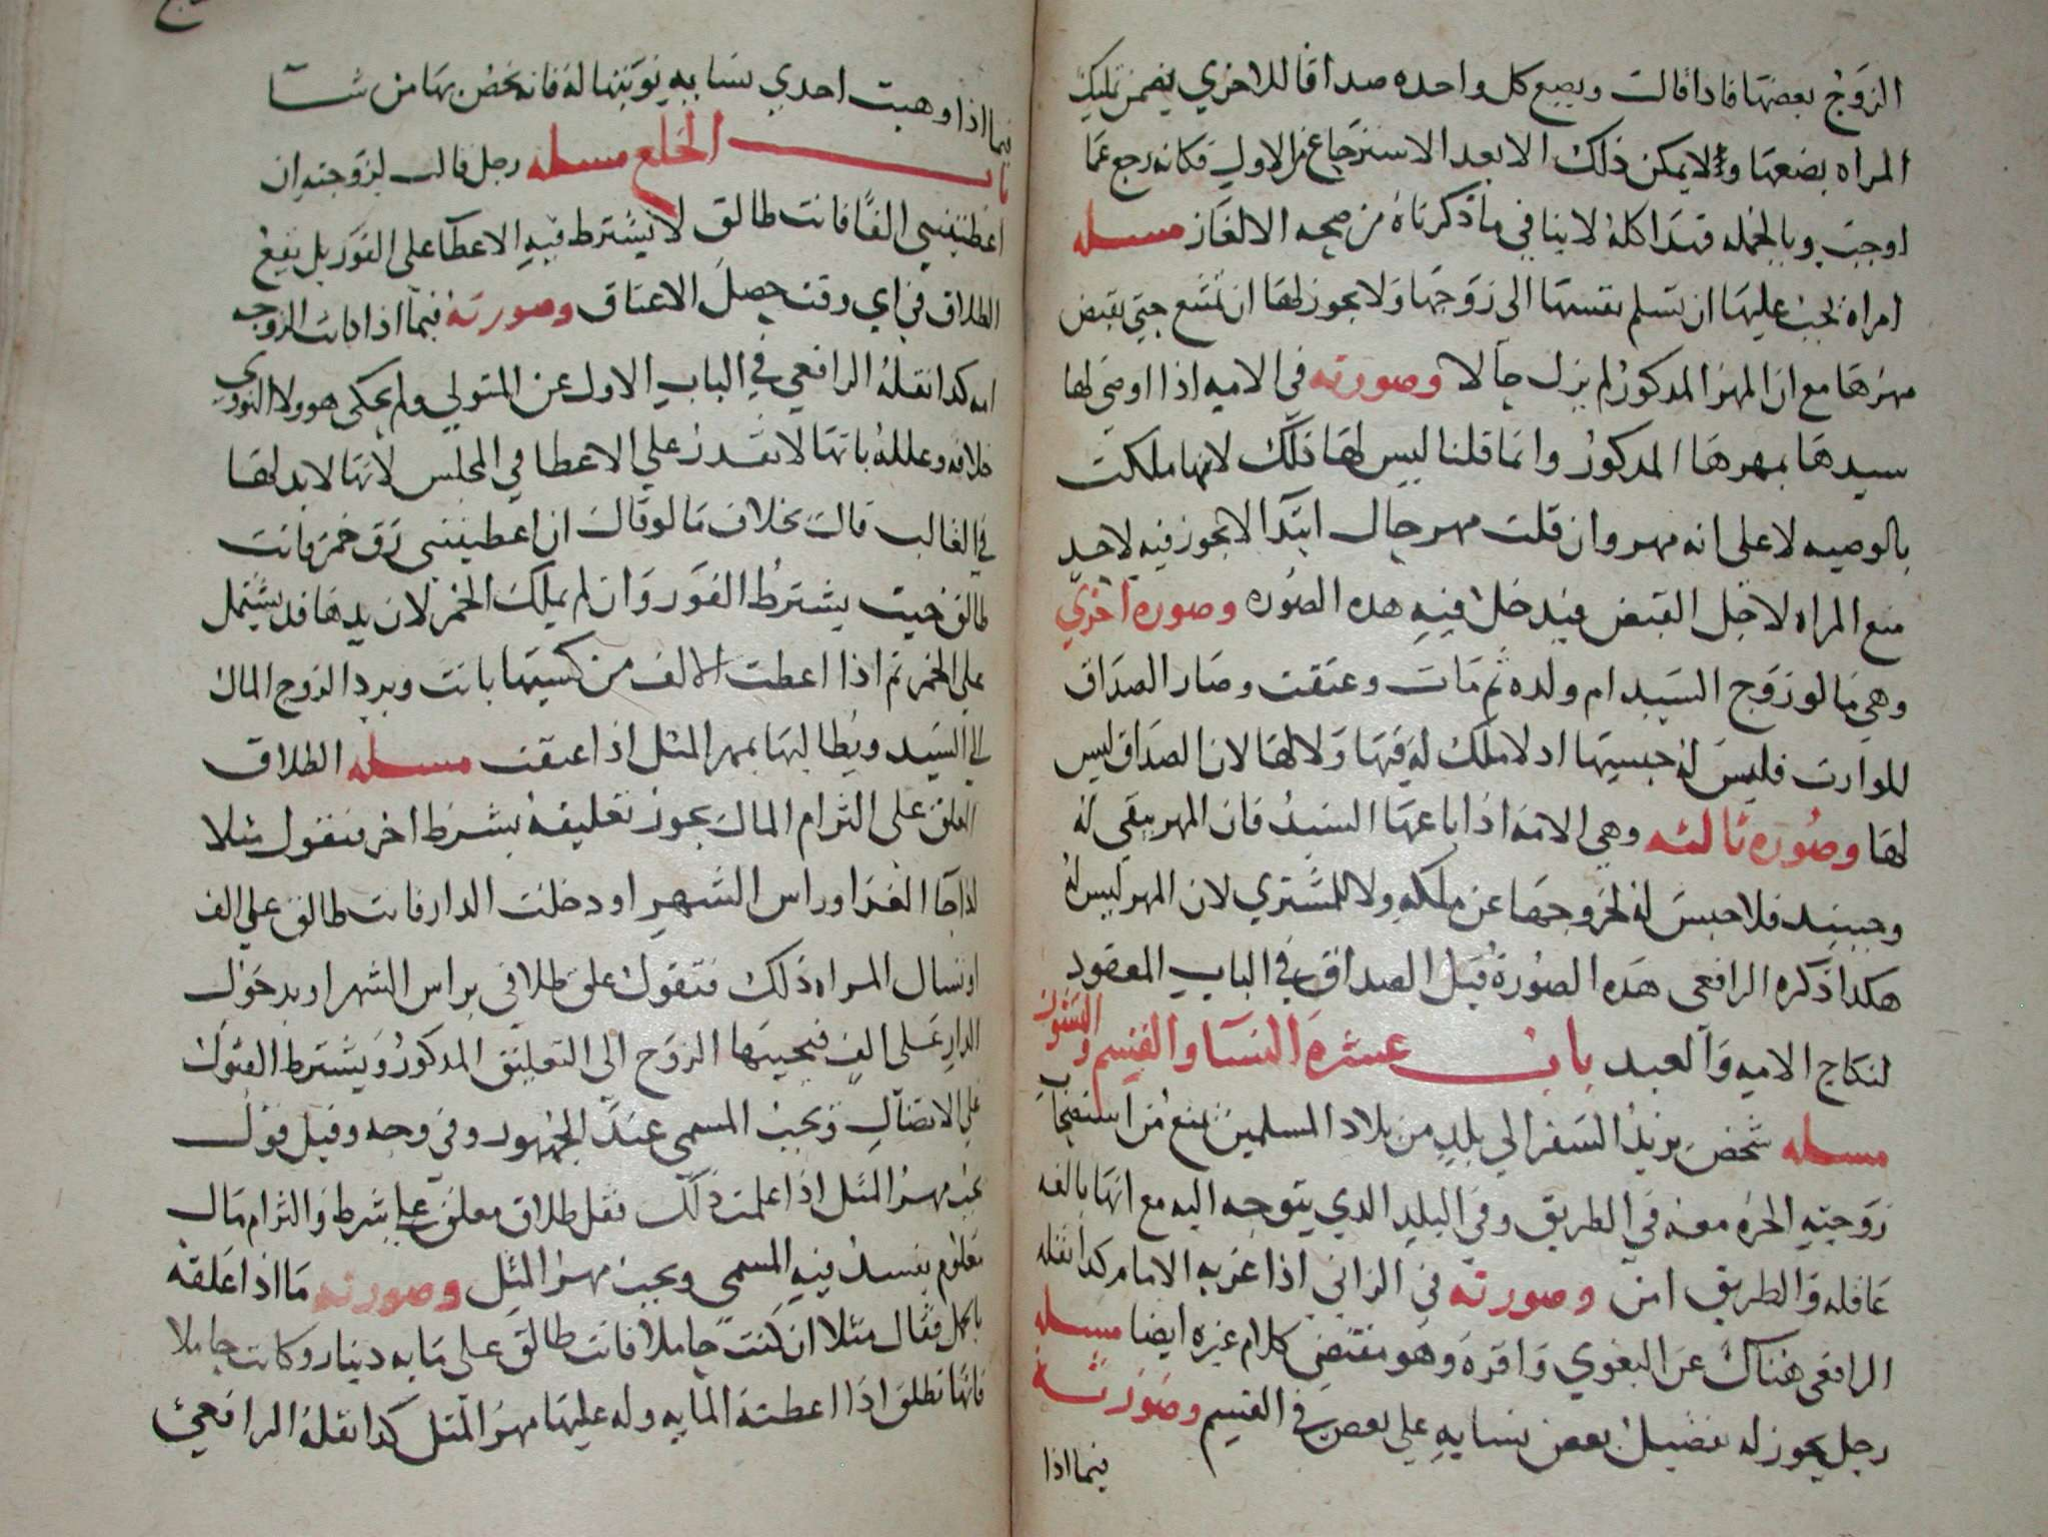 الزوج بعضها فاذا قالت وبضع كل واحده صداقا للاخري يضمن تمليك
المراه بضعها ولا يمكن ذلك الا بعد الاسترجاع من الاول فكانه رجع عما
اوجب وبالجمله فهذا كله لا ينافي ما ذكرناه من صحه الالغاز مسله
امراه تجب عليها ان تسلم نفسها الى زوجها ولا يجوز لها ان تمتنع حتى تقبض
مهرها مع ان المهر المذكور لم يزل حالا وصورته في الامه اذا اوصى لها
سيدها بمهرها المدكور وانما قلنا ليس لها ذلك لانها ملكت
بالوصيه لا على انه مهر وان قلت مهر حال ابتدا لا يجوز فيه لاحد
منع المراه لاجل القبض فيدخل فيه هده الصوره وصوره اخري
وهي ما لو زوج السيد ام ولده ثم مات وعتقت وصار الصداق
للوارت فليس له حبسها اد لا ملك له فيها ولا لها لان الصداق ليس
لها وصوره ثالثه وهي الامه اذا باعها السيد فان المهر يبقى له
وحينيد فلا حبس له لخروجها عن ملكه ولا للمشتري لان المهر ليس له
هكدا ذكره الرافعى هذه الصورة قبل الصداق في الباب المعقود
لنكاح الامه والعبد باب عشرة النسا والقسم والنشوز
مسله شخص يريد السفر الي بلد من بلاد المسلمين يمنع من استصحاب
زوجته الحره معه في الطريق وفي البلد الدي يتوجه اليه مع انها بالغه
عاقله والطريق امن وصورته في الزاني اذا غربه الامام كدا نقله
الرافعى هناك عن البغوي واقره وهو مقتضى كلام غيره ايضا مسله
رجل يجوز له تفضيل بعض نسايه علي بعض في القسم وصورته
فيما اذا
فيما اذا وهبت احدي نسايه نوبتها له فانه يخص بها من شا
باب الخلع مسله رجل قالت لزوجته ان
اعطيتني الفا فانت طالق لا يشترط فيه الاعطا على الفور بل يقع
الطلاق في اي وقت حصل الاعتاق وصورته فيما اذا كانت الزوجه
امه كدا نقله الرافعي في الباب الاول عن المتولي ولم يحكى هو ولا النووي
خلافه وعلله بانها لا تقدر علي الاعطا في المجلس لانها لا يد لها
في الغالب قال بخلاف ما لو قال ان اعطيتني زق خمر فانت
طالق حيت يشترط الفور وان لم يملك الخمر لان يدها قد يشتمل
على الخمر تم اذا اعطت الالف من كسبها بانت ويرد الزوج المال
الى السيد ويطالبها بمهر المثل اذا عتقت مسله الطلاق
المعلق على التزام المال يجوز تعليقه بشرط اخر فتقول مثلا
اذا جا الغد او راس الشهر او دخلت الدار فانت طالق علي الف
او تسال المراه ذلك فتقول علق طلاقي براس الشهر او بدخول
الدار على الف فيجيبها الزوج الي التعليق المدكور ويشترط القبول
علي الاتصال ويجب المسمى عند الجمهور وفي وجه وقيل قول
يجب مهر المثل اذا علمت ذلك فقل طلاق معلق على شرط والتزام مال
معلوم يفسد فيه المسمى ويجب مهر المثل وصورته ما اذا علقه
بالحمل فقال مثلا ان كنت حاملا فانت طالق على مايه دينار وكانت حاملا
فانها تطلق اذا اعطته المايه وله عليها مهر المثل كدا نقله الرافعي